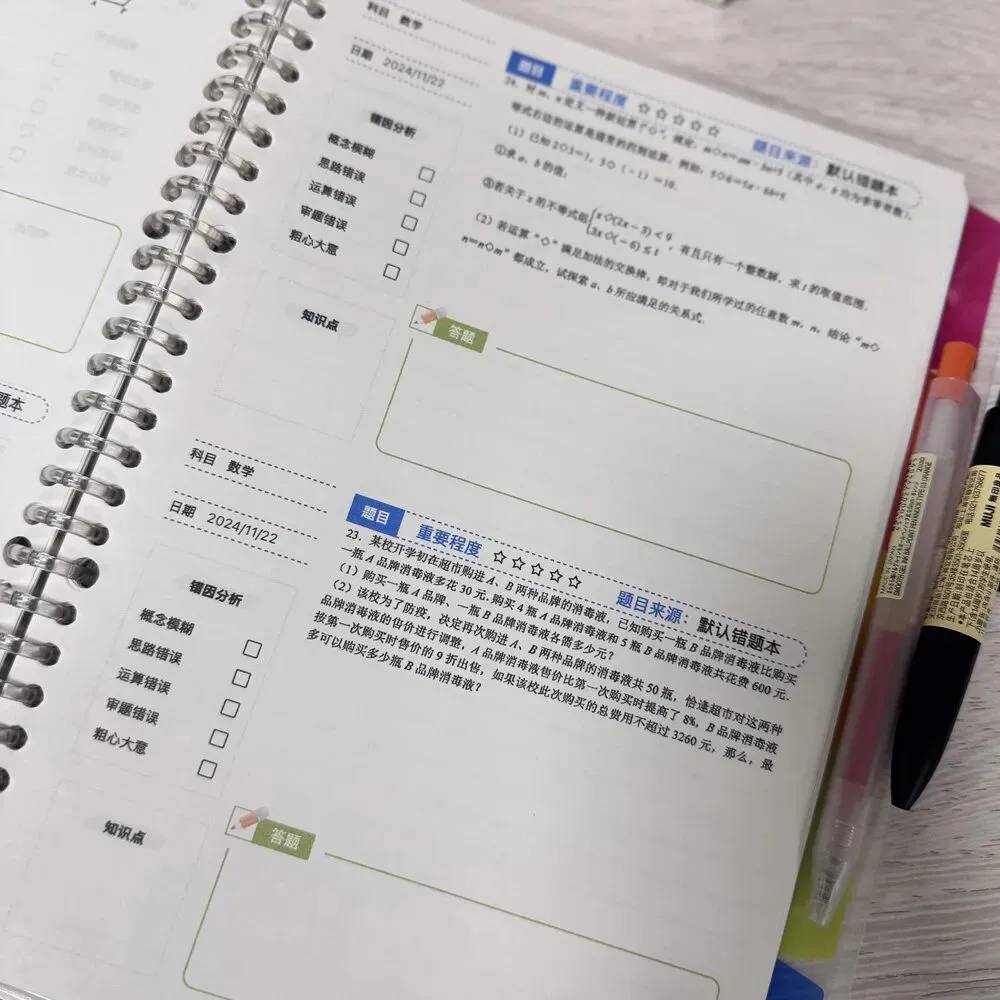 科目 数学
日期 2024/11/22
错因分析
概念模糊
思路错误
运算错误
审题错误
粗心大意
知识点
题目 重要程度 ☆☆☆☆☆
题目来源: 默认错题本
24. 对 m, n 定义一种新运算“◇”, 规定: m◇n=am-bn+5 (其中 a, b 均为非零常数),
等式右边的运算是通常的四则运算. 例如: 5◇6=5a-6b+5
(1) 已知 2◇3=1, 3◇(-1)=10.
①求 a、b 的值;
②若关于 x 的不等式组{x◇(2x-3)<9
3x◇(-6)≤t 有且只有一个整数解, 求 t 的取值范围.
(2) 若运算“◇”满足加法的交换律, 即对于我们所学过的任意数 m, n, 结论“m◇
n=n◇m”都成立, 试探索 a、b 所应满足的关系式.
答题
科目 数学
日期 2024/11/22
错因分析
概念模糊
思路错误
运算错误
审题错误
粗心大意
知识点
题目 重要程度 ☆☆☆☆☆
题目来源 默认错题本
23. 某校开学初在超市购进 A、B 两种品牌的消毒液, 已知购买一瓶 B 品牌消毒液比购买
一瓶 A 品牌消毒液多花 30 元. 购买 4 瓶 A 品牌消毒液和 5 瓶 B 品牌消毒液共花费 600 元.
(1) 购买一瓶 A 品牌、一瓶 B 品牌消毒液各需多少元?
(2) 该校为了防疫, 决定再次购进 A、B 两种品牌的消毒液共 50 瓶, 恰逢超市对这两种
品牌消毒液的售价进行调整, A 品牌消毒液售价比第一次购买时提高了 8%, B 品牌消毒液
按第一次购买时售价的 9 折出售, 如果该校此次购买的总费用不超过 3260 元, 那么, 最
多可以购买多少瓶 B 品牌消毒液?
答题
题本
SMOOTH GEL INK BALLPOINT PEN KNOCK TYPE 0.5 ORANGE
MUJI 無印良品